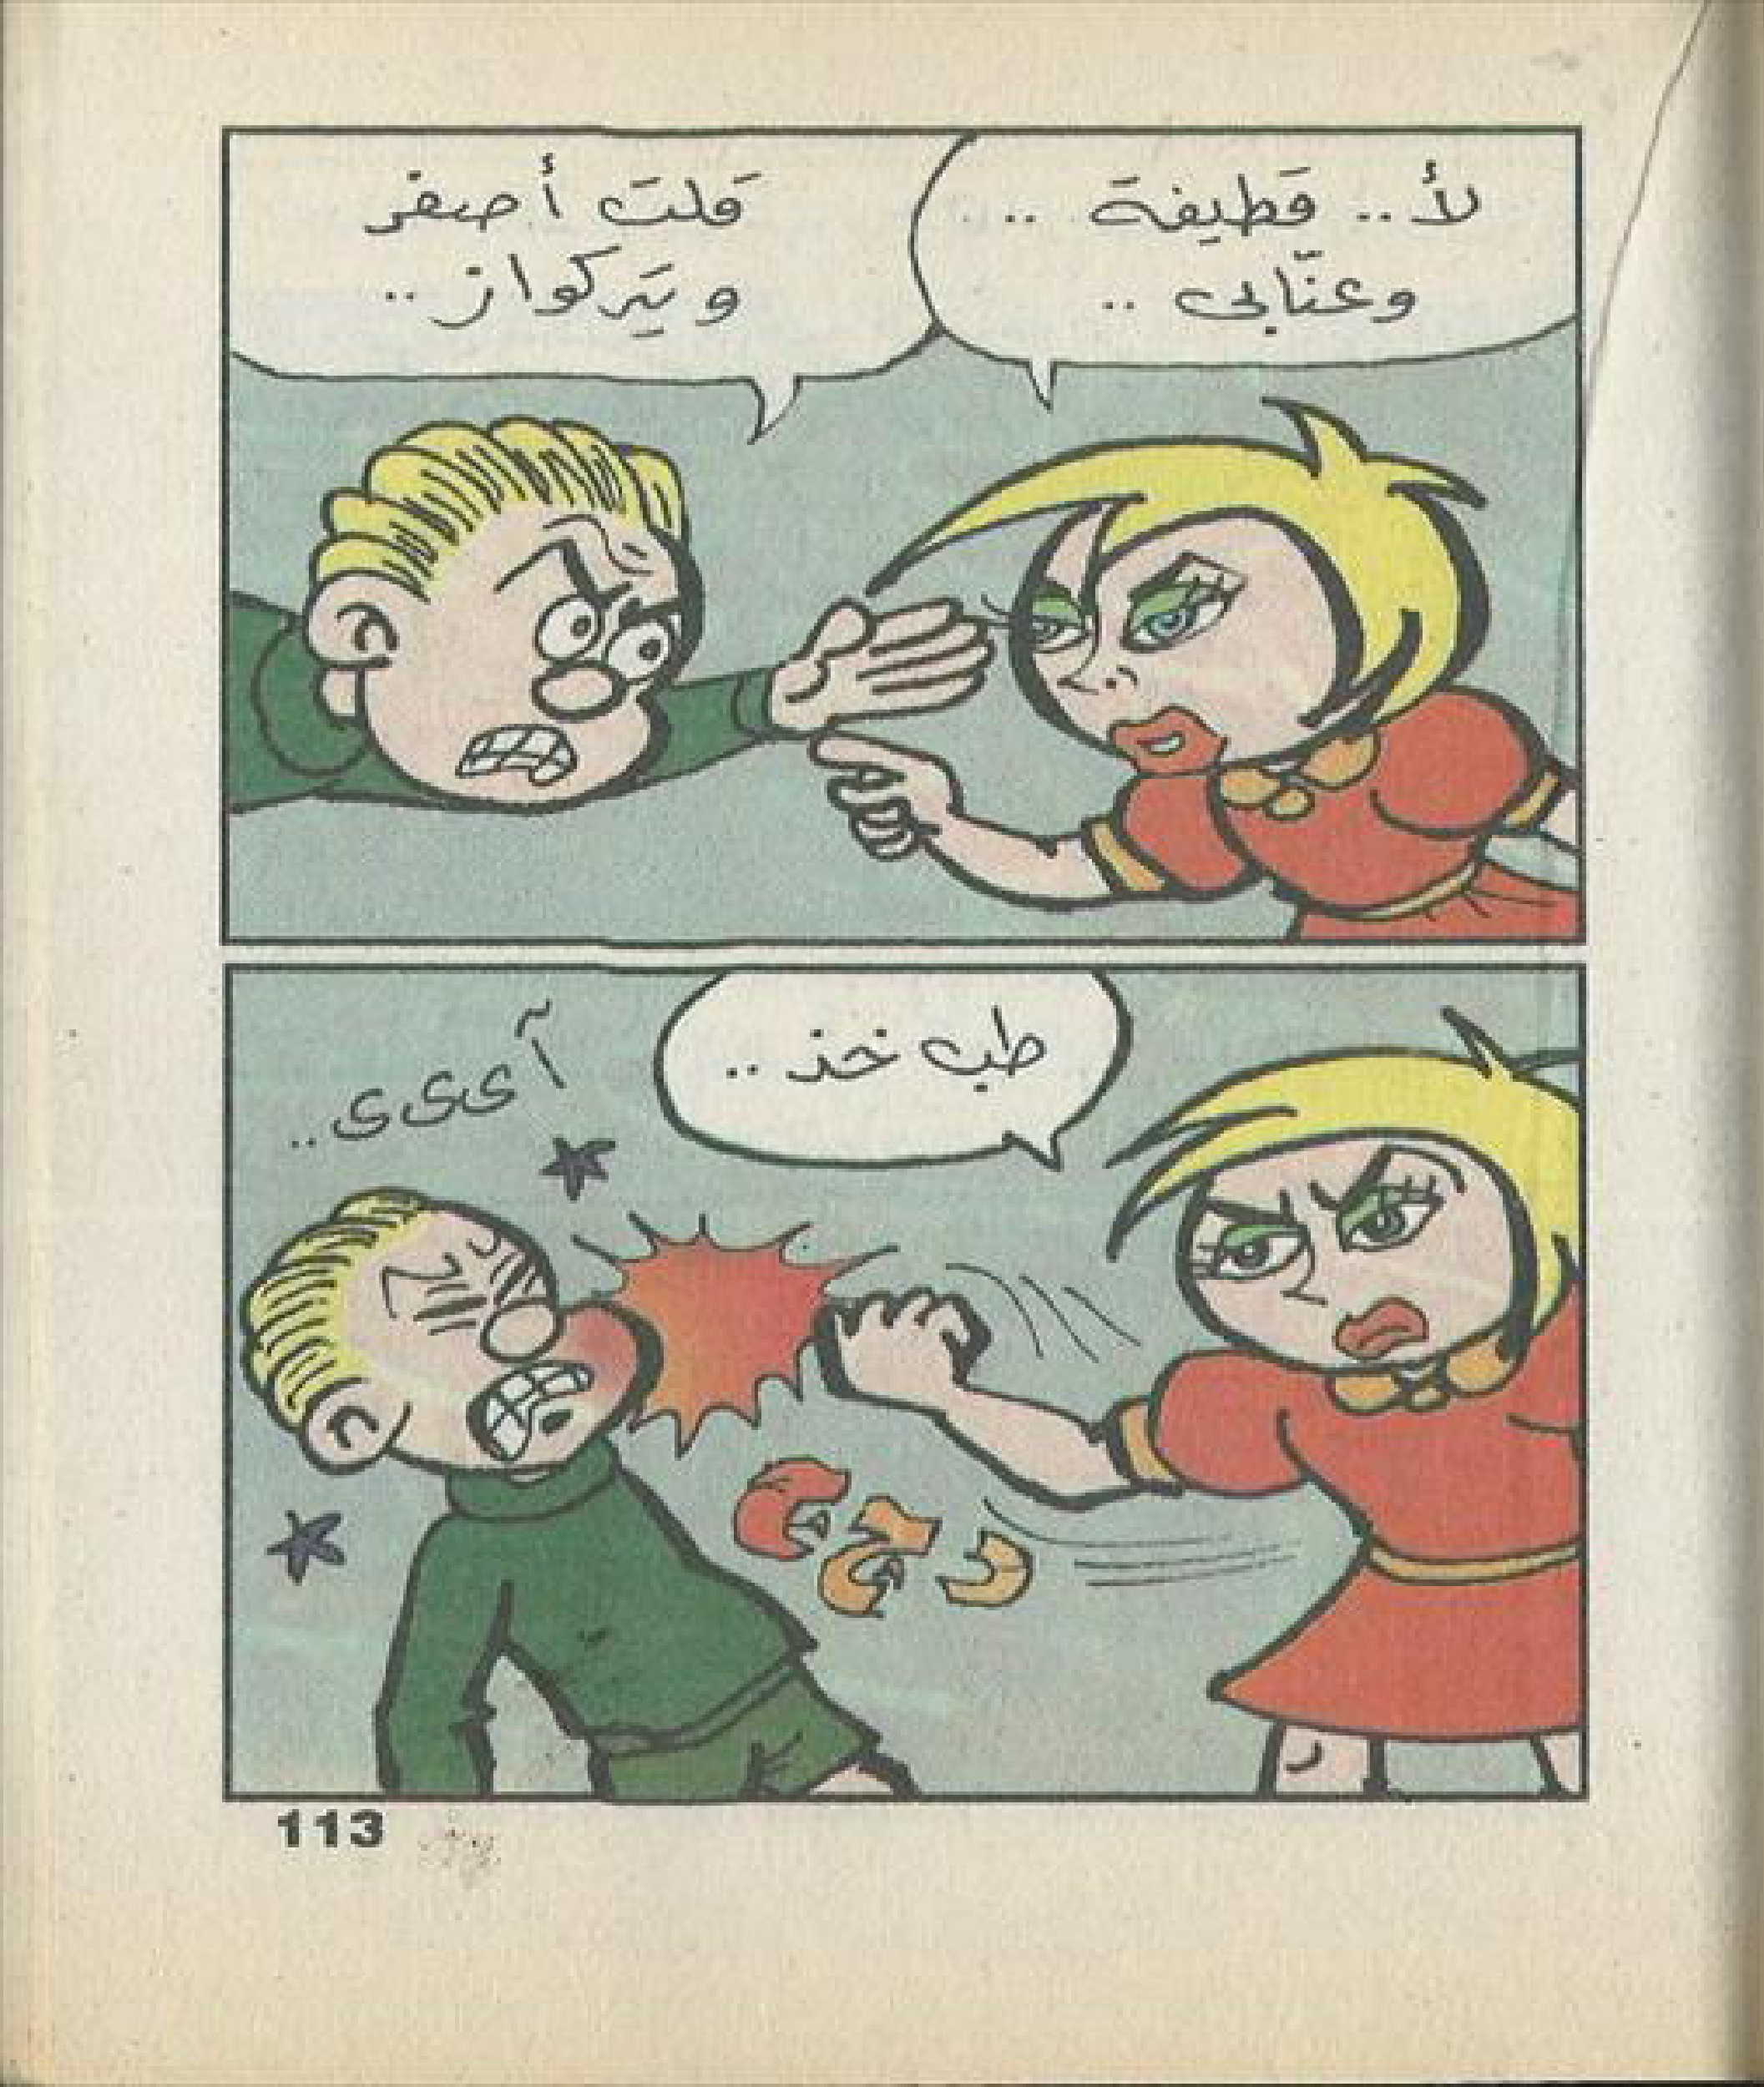 لأ.. قطيفة ..
وعنّابى ..
قلت أصفر
وتركواز ..
طب خذ ..
آ ى ى ى ..
113